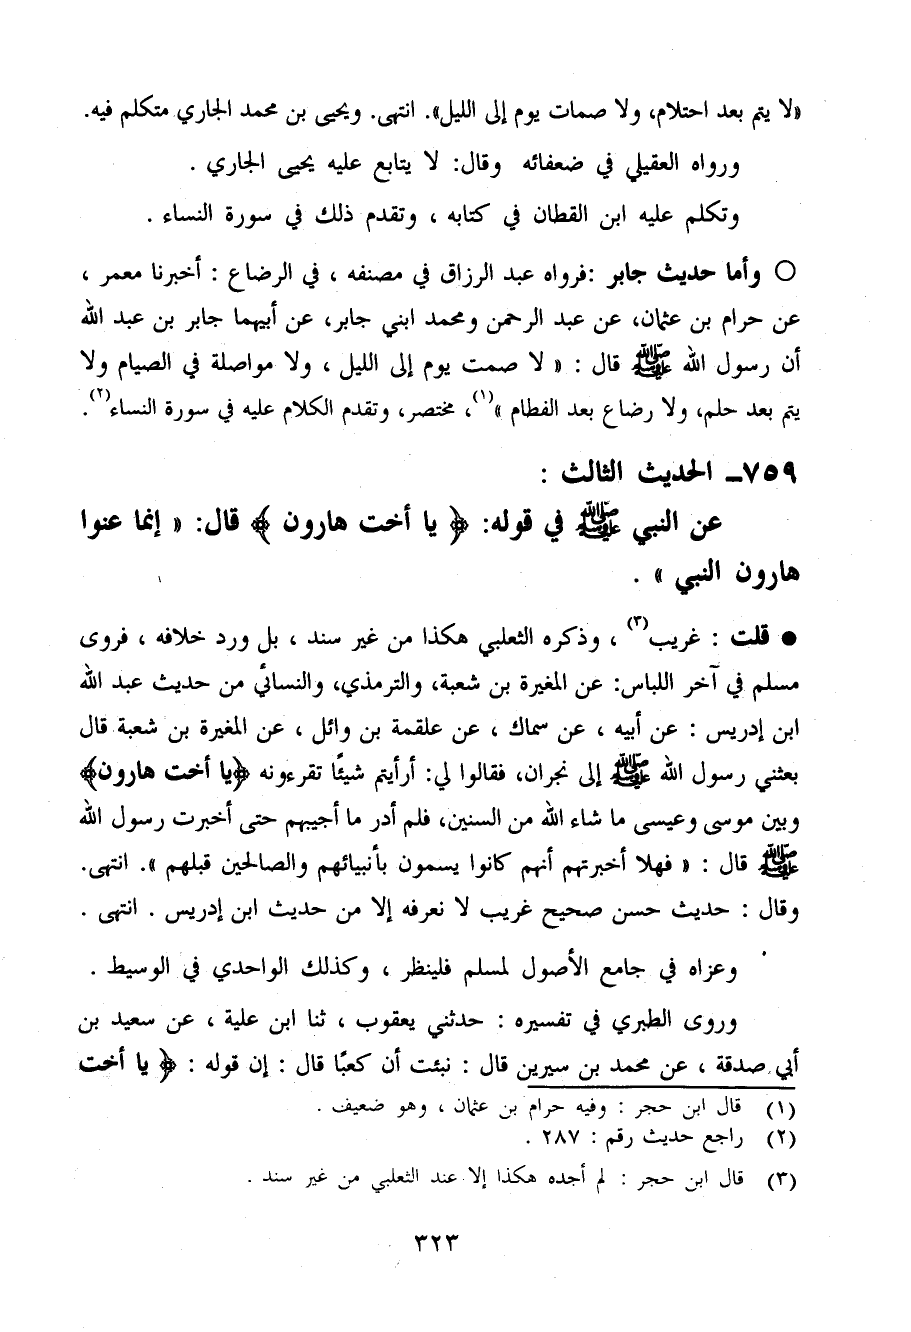 «لا يتم بعد احتلام، ولا صمات يوم إلى الليل». انتهى. ويحيى بن محمد الجاري متكلم فيه.
ورواه العقيلي في ضعفائه وقال: لا يتابع عليه يحيى الجاري .
وتكلم عليه ابن القطان في كتابه ، وتقدم ذلك في سورة النساء .
○ وأما حديث جابر :فرواه عبد الرزاق في مصنفه ، في الرضاع : أخبرنا معمر ،
عن حرام بن عثمان، عن عبد الرحمن ومحمد ابني جابر، عن أبيهما جابر بن عبد الله
أن رسول الله ﷺ قال : « لا صمت يوم إلى الليل ، ولا مواصلة في الصيام ولا
يتم بعد حلم، ولا رضاع بعد الفطام »(١)، مختصر، وتقدم الكلام عليه في سورة النساء(٢).
٧٥٩ـ الحديث الثالث :
عن النبي ﷺ في قوله: ﴿ يا أخت هارون ﴾ قال: « إنما عنوا
هارون النبي » .
● قلت : غريب(٣) ، وذكره الثعلبي هكذا من غير سند ، بل ورد خلافه ، فروى
مسلم في آخر اللباس: عن المغيرة بن شعبة، والترمذي، والنسائي من حديث عبد الله
ابن إدريس : عن أبيه ، عن سماك ، عن علقمة بن وائل ، عن المغيرة بن شعبة قال
بعثني رسول الله ﷺ إلى نجران، فقالوا لي: أرأيتم شيئًا تقرءونه ﴿يا أخت هارون﴾
وبين موسى وعيسى ما شاء الله من السنين، فلم أدر ما أجيبهم حتى أخبرت رسول الله
ﷺ قال : « فهلا أخبرتهم أنهم كانوا يسمون بأنبيائهم والصالحين قبلهم ». انتهى.
وقال : حديث حسن صحيح غريب لا نعرفه إلا من حديث ابن إدريس . انتهى .
وعزاه في جامع الأصول لمسلم فلينظر ، وكذلك الواحدي في الوسيط .
وروى الطبري في تفسيره : حدثني يعقوب ، ثنا ابن علية ، عن سعيد بن
أبي صدقة ، عن محمد بن سيرين قال : نبئت أن كعبًا قال : إن قوله : ﴿ يا أخت
(١) قال ابن حجر : وفيه حرام بن عثمان ، وهو ضعيف .
(٢) راجع حديث رقم : ٢٨٧ .
(٣) قال ابن حجر : لم أجده هكذا إلا عند الثعلبي من غير سند .
٣٢٣